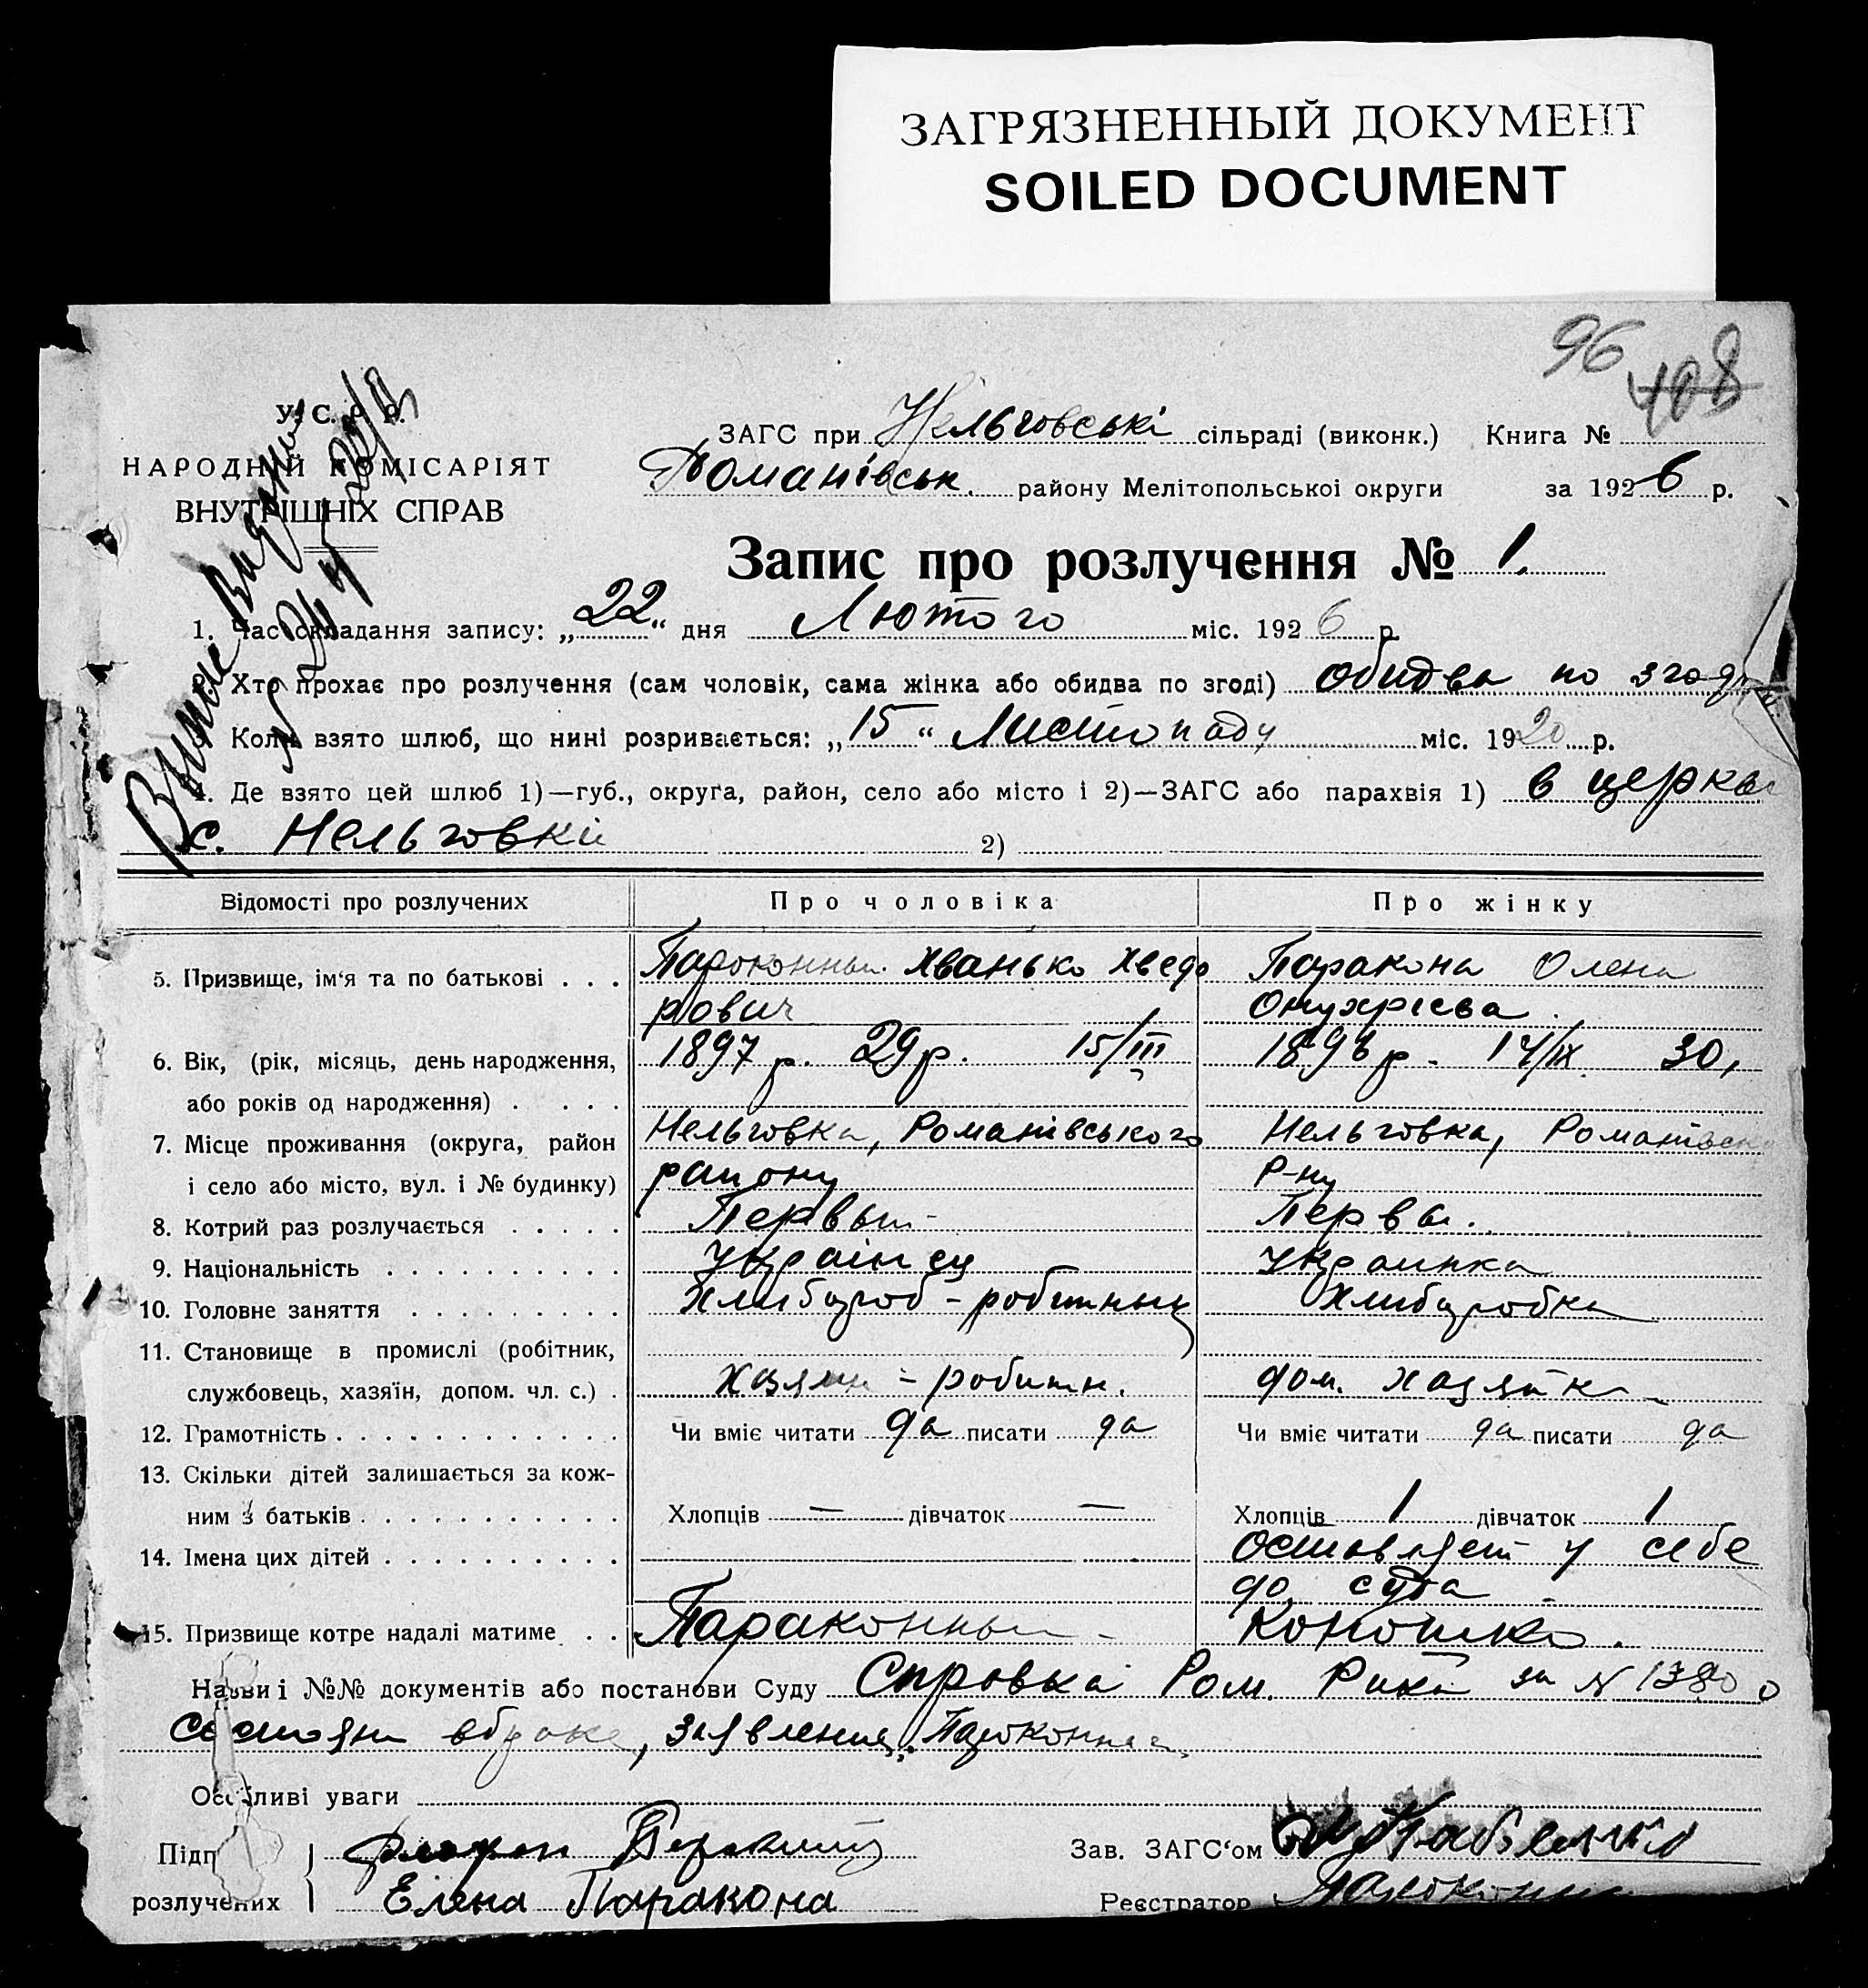 ЗАГРЯЗНЕННЫЙ ДОКУМЕНТ
SOILED DOCUMENT
96
108
У. С. Р. Р.
НАРОДНІЙ КОМІСАРІЯТ
ВНУТРІШНІХ СПРАВ
ЗАГС при Нельговські сільраді (виконк.) Книга №
Романівськ. району Мелітопольськоі округи за 1926 р.
Запис про розлучення № 1.
1. Час складання запису: „22“ дня Лютого міс. 1926 р.
Хто прохає про розлучення (сам чоловік, сама жінка або обидва по згоді) обидва по згоді
Коли взято шлюб, що нині розривається: „15“ Листопаду міс. 1920 р.
4. Де взято цей шлюб 1)—губ., округа, район, село або місто і 2)—ЗАГС або парахвія 1) в церкви
с. Нельговки 2)
Відомості про розлучених Про чоловіка Про жінку
5. Призвище, ім‘я та по батькові . . . Хванько Хведо Паракона Олена
рович Онухрієва.
6. Вік, (рік, місяць, день народження, 1897 р. 29 р. 15/III 30,
або років од народження) . . . .
7. Місце проживання (округа, район Нельговка, Романівського Нельговка, Романівськ
і село або місто, вул. і № будинку) району Р-ну
8. Котрий раз розлучається . . . . . Первый Первы.
9. Національність . . . . . . . . . . Україн​ец Украинка
10. Головне заняття . . . . . . . . . Хлибороб - робитнык Хлиборобка
11. Становище в промислі (робітник,
службовець, хазяїн, допом. чл. с.) . хазяин - робитн. дом. хазяйка
12. Грамотність . . . . . . . . . . . . Чи вміє читати да писати да Чи вміє читати да писати да
13. Скільки дітей залишається за кож-
ним з батьків . . . . . . . . . . . Хлопців — дівчаток — Хлопців 1 дівчаток 1
14. Імена цих дітей . . . . . . . . . . оставляет у себе
до суда
15. Призвище котре надалі матиме . . Параконный -
Назви і №№ документів або постанови Суду Справка Ром. Рика за № 1380 о
состоян в браке, заявления
Особливі уваги
Підп
розлучених
Елена Паракона
Зав. ЗАГС‘ом
Реєстратор